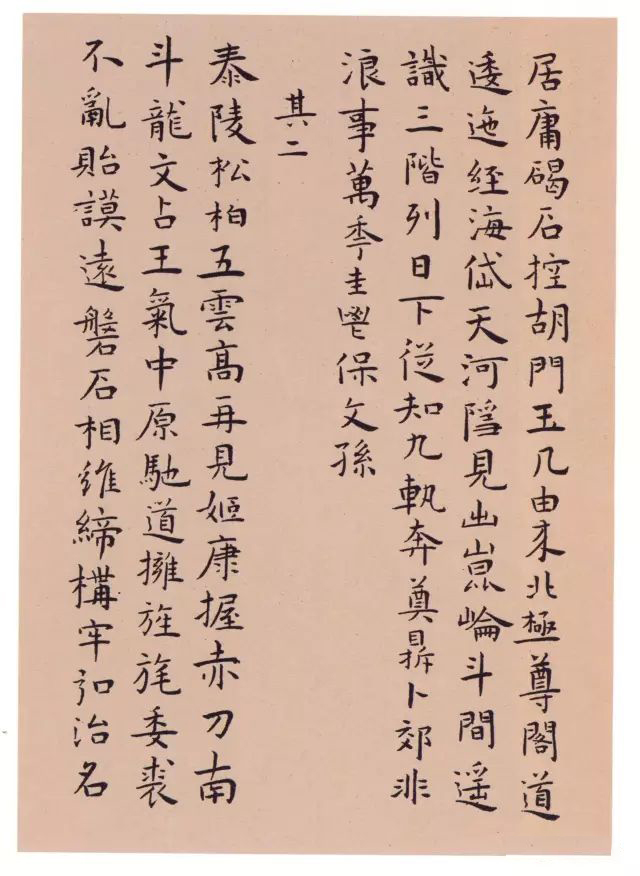 居庸碣石控胡門玉几由來北極尊閣道
逶迤經海岱天河隱見出崑崙斗間遥
識三階列日下從知九軌奔奠鼎卜郊非
浪事萬秊圭鬯保文孫
其二
泰陵松柏五雲髙再見姬康握赤刀南
斗龍文占王氣中原馳道擁旌旄委裘
不亂貽謨遠磐石相維締構牢弘治名